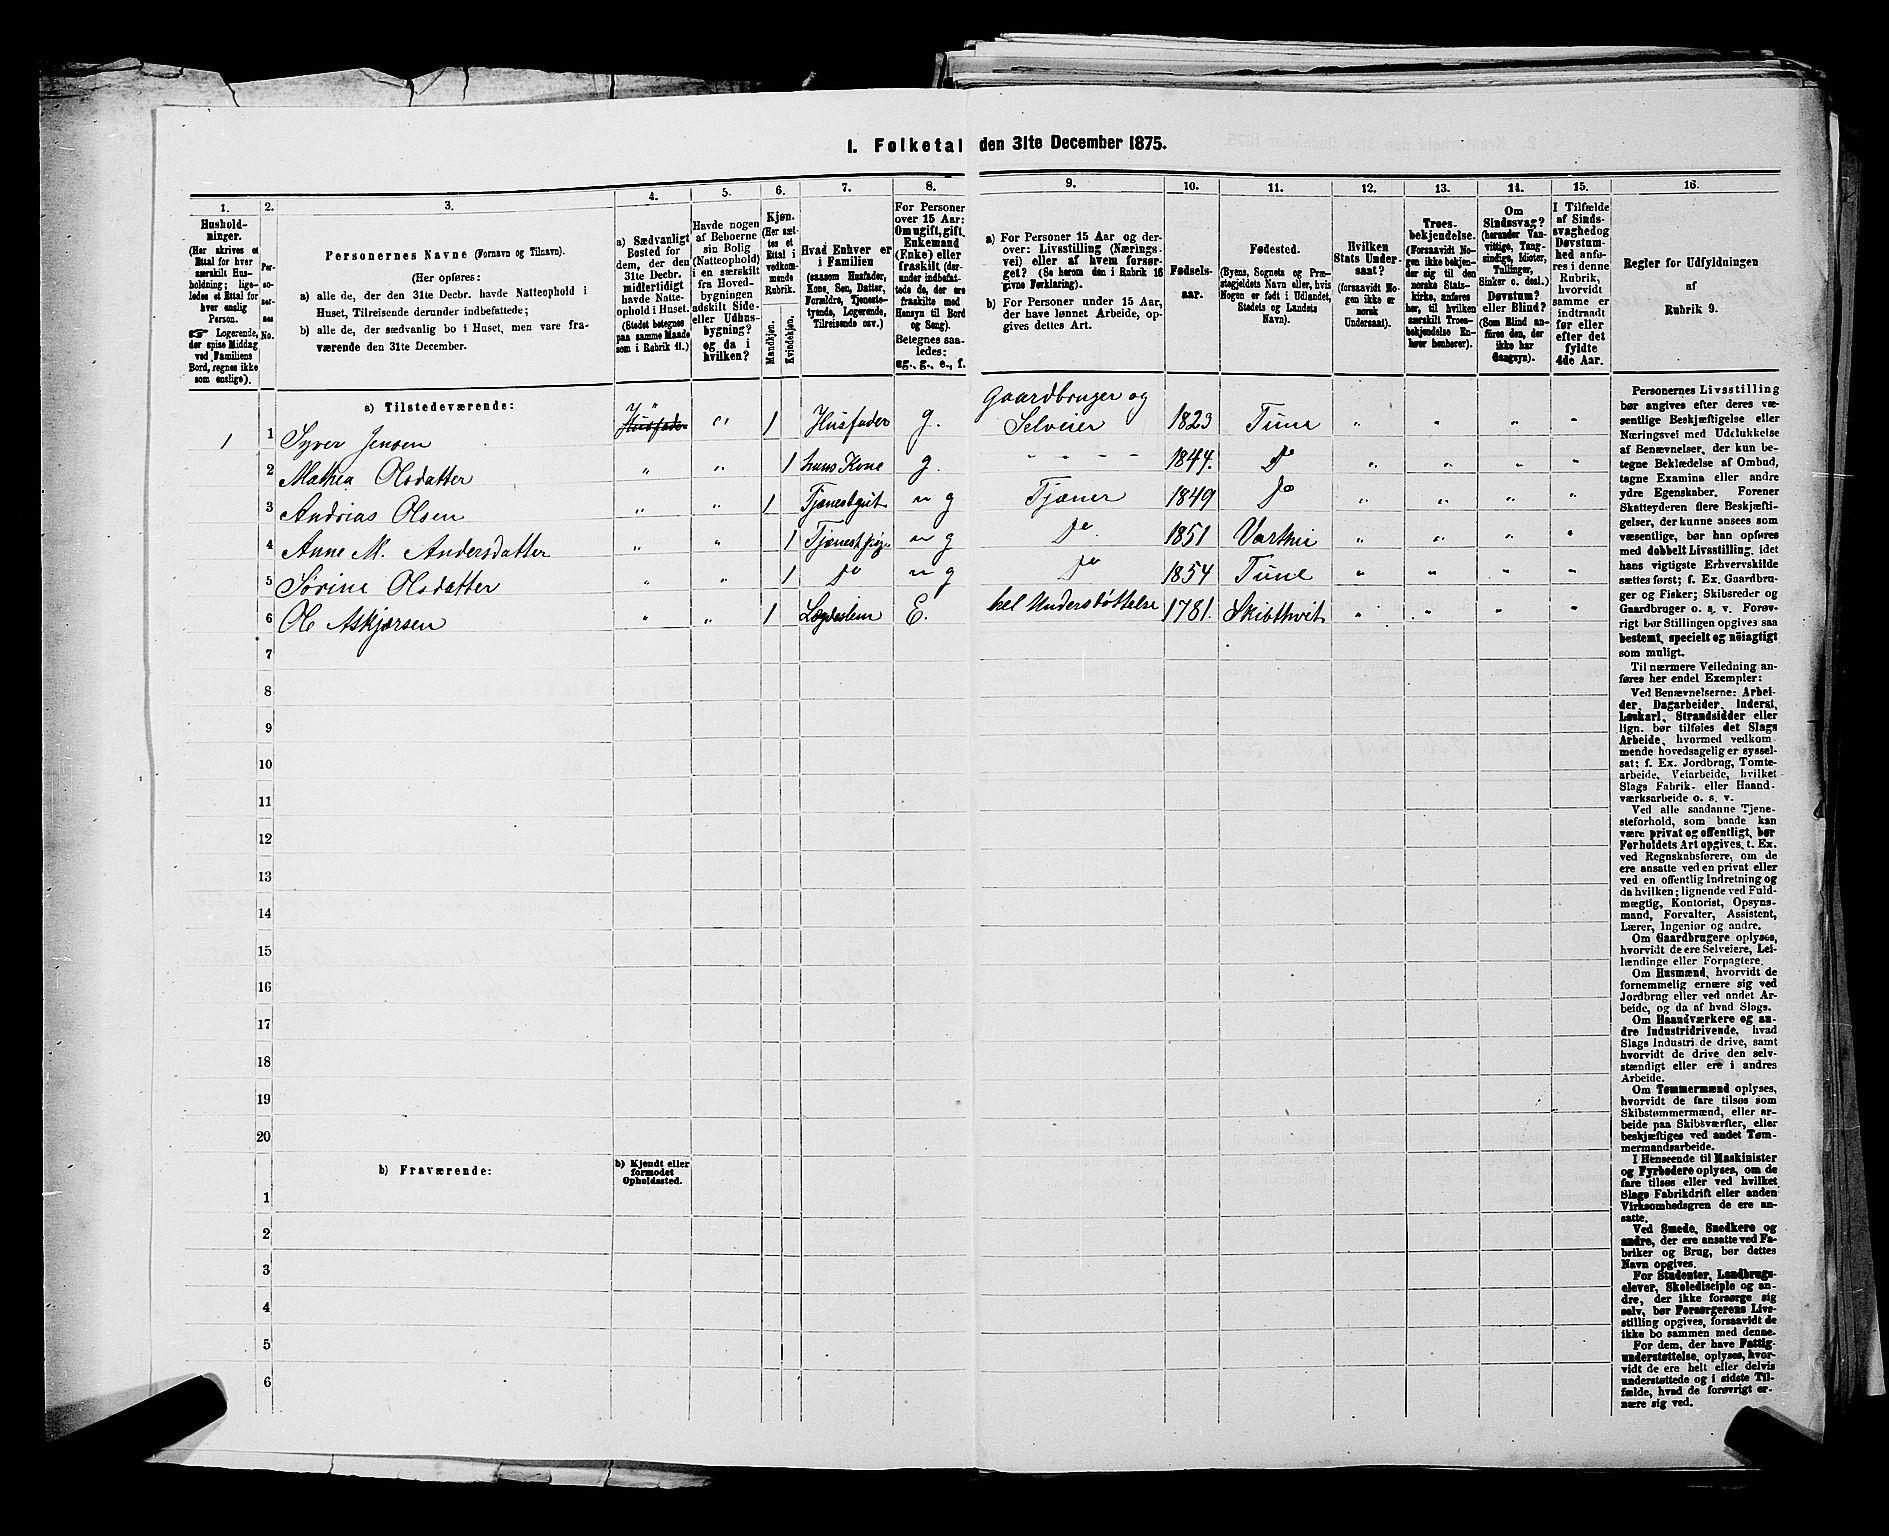 I. Folketal den 31te December 1875.
1.
Husholdninger.
(Her skrives et Ettal for hver særskilt Husholdning; ligeledes et Ettal for hver enslig Person.
☞ Logerende, der spise Middag ved Familiens Bord, regnes ikke som enslige).
2.
Personernes No.
3.
Personernes Navne (Fornavn og Tilnavn).
(Her opføres:
a) alle de, der den 31te Decbr. havde Natteophold i Huset, Tilreisende derunder indbefattede;
b) alle de, der sædvanlig bo i Huset, men vare fraværende den 31te December.
4.
a) Sædvanligt Bosted for dem, der den 31te Decbr. midlertidigt havde Natteophold i Huset.
(Stedet betegnes paa samme Maade som i Rubrik 11.)
5.
Havde nogen af Beboerne sin Bolig (Natteophold) i en særskilt fra Hovedbygningen adskilt Side- eller Udhusbygning? og da i hvilken?
6.
Kjøn.
(Her sættes et Ettal i vedkommende Rubrik.
Mandkjøn.
Kvindekjøn.
7.
Hvad Enhver er i Familien
(saasom Husfader, Kone, Søn, Datter, Forældre, Tjenestetyende, Logerende, Tilreisende osv.)
8.
For Personer over 15 Aar: Om ugift, gift, Enkemand (Enke) eller fraskilt (derunder indbefattede de, der ere fraskilte med Hensyn til Bord og Seng).
Betegnes saaledes: ug., g., e., f.
9.
a) For Personer 15 Aar og derover: Livsstilling (Næringsvei) eller af hvem forsørget? (Se herom den i Rubrik 16 givne Forklaring).
b) For Personer under 15 Aar, der have lønnet Arbeide, opgives dettes Art.
10.
Fødselsaar.
11.
Fødested.
(Byens, Sognets og Præstegjeldets Navn eller, hvis Nogen er født i Udlandet, Stedets og Landets Navn).
12.
Hvilken Stats Undersaat?
(forsaavidt Nogen ikke er norsk Undersaat).
13.
Troesbekjendelse.
(Forsaavidt Nogen ikke bekjender sig til den norske Statskirke, anføres her, til hvilken særskilt Troesbekjendelse Enhver henhører).
14.
Om Sindssvag? (herunder Vanvittige, Tungsindige, Idioter, Tullinger, Sinker o. desl.) Døvstum? eller Blind?
(Som Blind anføres den, der ikke har Gangsyn).
15.
I Tilfælde af Sindssvaghed og Døvstumhed anføres i denne Rubrik, hvorvidt samme er indtraadt før eller efter det fyldte 4de Aar.
16.
Regler for Udfyldningen af Rubrik 9.
a) Tilstedeværende:
1 1 Syver Jensen " Husfader " 1 Husfader g. Gaardbruger og Selveier 1823 Tune " " " "
2 Mathea Olsdatter " " 1 hans Kone g. " " " " 1844. Do " " " "
3 Andrias Olsen " " 1 Tjenestgut u g Tjæner 1849 Do " " " "
4 Anne M. Andersdatter " " 1 u g Do 1851 " " " "
5 Sørine Olsdatter " " 1 Do u g Do 1854 Tune " " " "
6 Ole Askjørsen " " 1 Lægdeslem E. hel Understøttelse 1781. Skibthvit " " " "
7
8
9
10
11
12
13
14
15
16
17
18
19
20
b) Fraværende:
b) Kjendt eller formodet Opholdssted.
1
2
3
4
5
6
Personernes Livsstilling
bør angives efter deres væ-
sentlige Beskjæftigelse eller
Næringsvei med Udelukkelse
af Benævnelser, der kun be-
tegne Beklædelse af Ombud,
tagne Examina eller andre
ydre Egenskaber. Forener
Skatteyderen flere Beskjæfti-
gelser, der kunne ansees som
væsentlige, bør han opføres
med dobbelt Livsstilling, idet
hans vigtigste Erhvervskilde
sættes først; f. Ex. Gaardbru-
ger og Fisker; Skibsreder og
Gaardbruger o. s. v. Forøv-
rigt bør Stillingen opgives saa
bestemt, specielt og nøiagtigt
som muligt.
Til nærmere Veiledning an-
føres her endel Exempler:
Ved Benævnelserne: Arbei-
der, Dagarbeider, Inderst,
Løskarl, Strandsidder eller
lign. bør tilføies det Slags
Arbeide, hvormed vedkom-
mende hovedsagelig er syssel-
sat; f. Ex. Jordbrug, Tomte-
arbeide, Veiarbeide, hvilket
Slags Fabrik- eller Haand-
værksarbeide o. s. v.
Ved alle saadanne Tjene-
steforhold, som baade kan
være privat og offentligt, bør
Forholdets Art opgives, t. Ex.
ved Regnskabsførere, om de
ere ansatte ved en privat eller
ved en offentlig Indretning og
da hvilken; lignende ved Fuld-
mægtig, Kontorist, Opsyns-
mand, Forvalter, Assistent,
Lærer, Ingeniør og andre.
Om Gaardbrugere oplyses,
hvorvidt de ere Selveiere, Lei-
lændinge eller Forpagtere.
Om Husmænd, hvorvidt de
fornemmelig ernære sig ved
Jordbrug eller ved andet Ar-
beide, og da af hvad Slags.
Om Haandværkere og an-
dre Industridrivende, hvad
Slags Industri de drive, samt
hvorvidt de drive den selv-
stændigt eller ere i andres
Arbeide.
Om Tømmermænd oplyses,
hvorvidt de fare tilsøs som
Skibstømmermænd, eller ar-
beide paa Skibsværfter, eller
beskjæftiges ved andet Tøm-
mermandsarbeide.
I Henseende til Maskinister
og Fyrbødere oplyses, om de
fare tilsøs eller ved hvilket
Slags Fabrikdrift eller anden
Virksomhedsgren de ere an-
satte.
Ved Smede, Snedkere og
andre, der ere ansatte ved Fa-
briker og Brug, bør dettes
Navn opgives.
For Studenter, Landbrugs-
elever, Skoledisciple og an-
dre, der ikke forsørge sig
selv, bør Forsørgerens Livs-
stilling opgives, forsaavidt de
ikke bo sammen med denne.
For dem, der have Fattig-
understøttelse, oplyses, hvor-
vidt de ere helt eller delvis
understøttede og i sidste Til-
fælde, hvad de forøvrigt er-
nære sig ved.